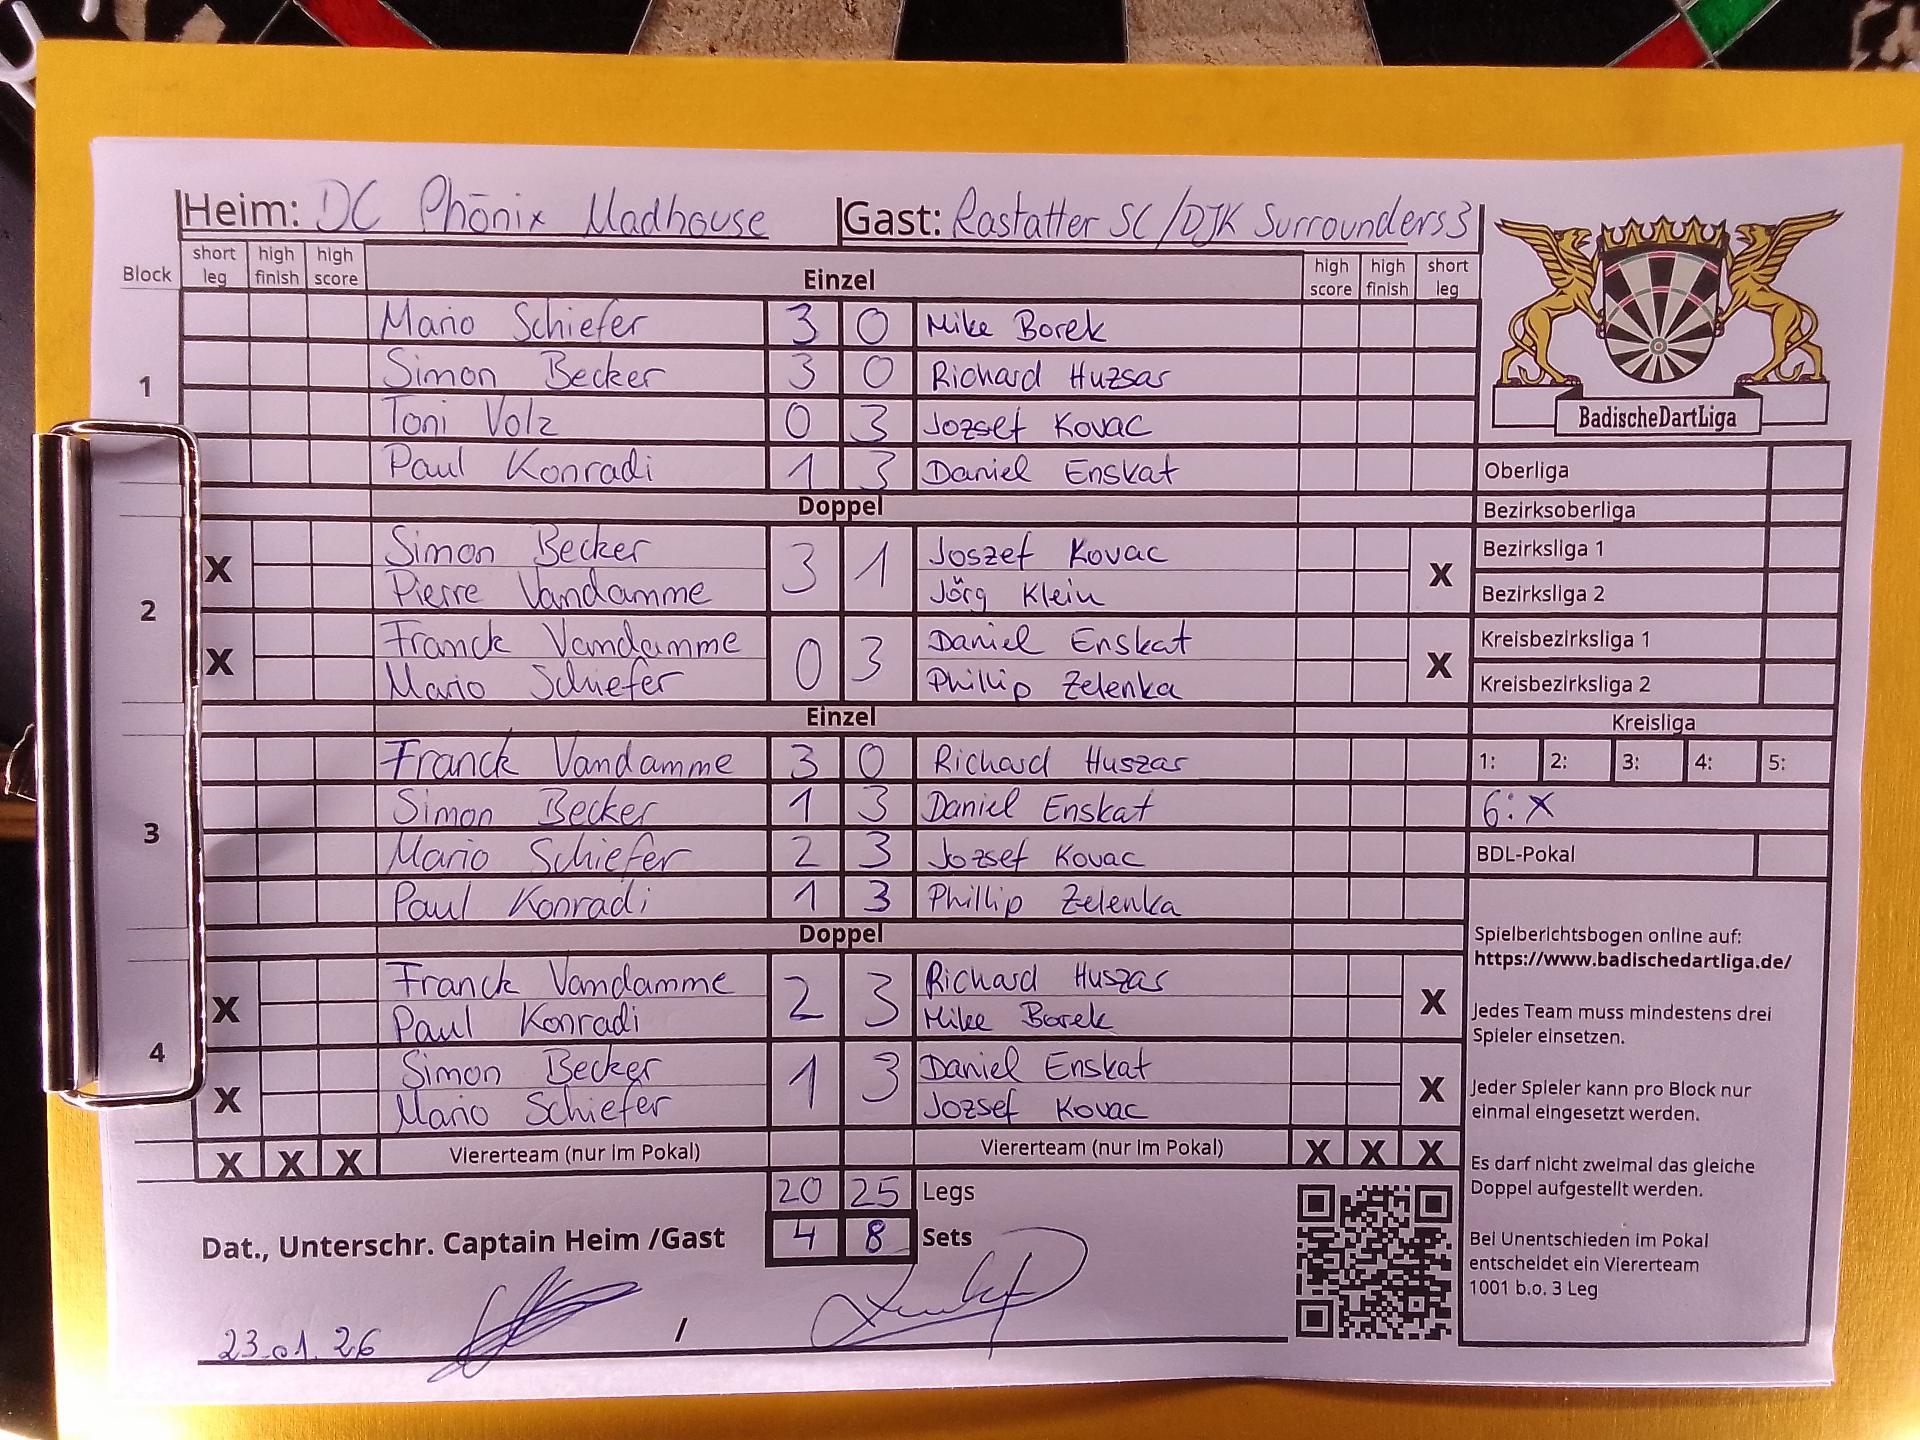 Heim: DC Phönix Madhouse Gast: Rastatter SC/DJK Surrounders3
Block short leg high finish high score Einzel high score high finish short leg
1
Mario Schiefer 3 0 Mike Borek
Simon Becker 3 0 Richard Huzsar
Toni Volz 0 3 Jozsef Kovac
Paul Konradi 1 3 Daniel Enskat
Doppel
2
X Simon Becker 3 1 Joszef Kovac X
Pierre Vandamme Jörg Klein
X Franck Vandamme 0 3 Daniel Enskat X
Mario Schiefer Phillip Zelenka
Einzel
3
Franck Vandamme 3 0 Richard Huszar
Simon Becker 1 3 Daniel Enskat
Mario Schiefer 2 3 Jozsef Kovac
Paul Konradi 1 3 Phillip Zelenka
Doppel
4
X Franck Vandamme 2 3 Richard Huszar X
Paul Konradi Mike Borek
X Simon Becker 1 3 Daniel Enskat X
Mario Schiefer Jozsef Kovac
X X X Viererteam (nur im Pokal) Viererteam (nur im Pokal) X X X
20 25 Legs
4 8 Sets
Dat., Unterschr. Captain Heim /Gast
23.01.26 /
BadischeDartLiga
Oberliga
Bezirksoberliga
Bezirksliga 1
Bezirksliga 2
Kreisbezirksliga 1
Kreisbezirksliga 2
Kreisliga
1: 2: 3: 4: 5:
6: X
BDL-Pokal
Spielberichtsbogen online auf:
https://www.badischedartliga.de/
Jedes Team muss mindestens drei
Spieler einsetzen.
Jeder Spieler kann pro Block nur
einmal eingesetzt werden.
Es darf nicht zweimal das gleiche
Doppel aufgestellt werden.
Bei Unentschieden im Pokal
entscheidet ein Viererteam
1001 b.o. 3 Leg